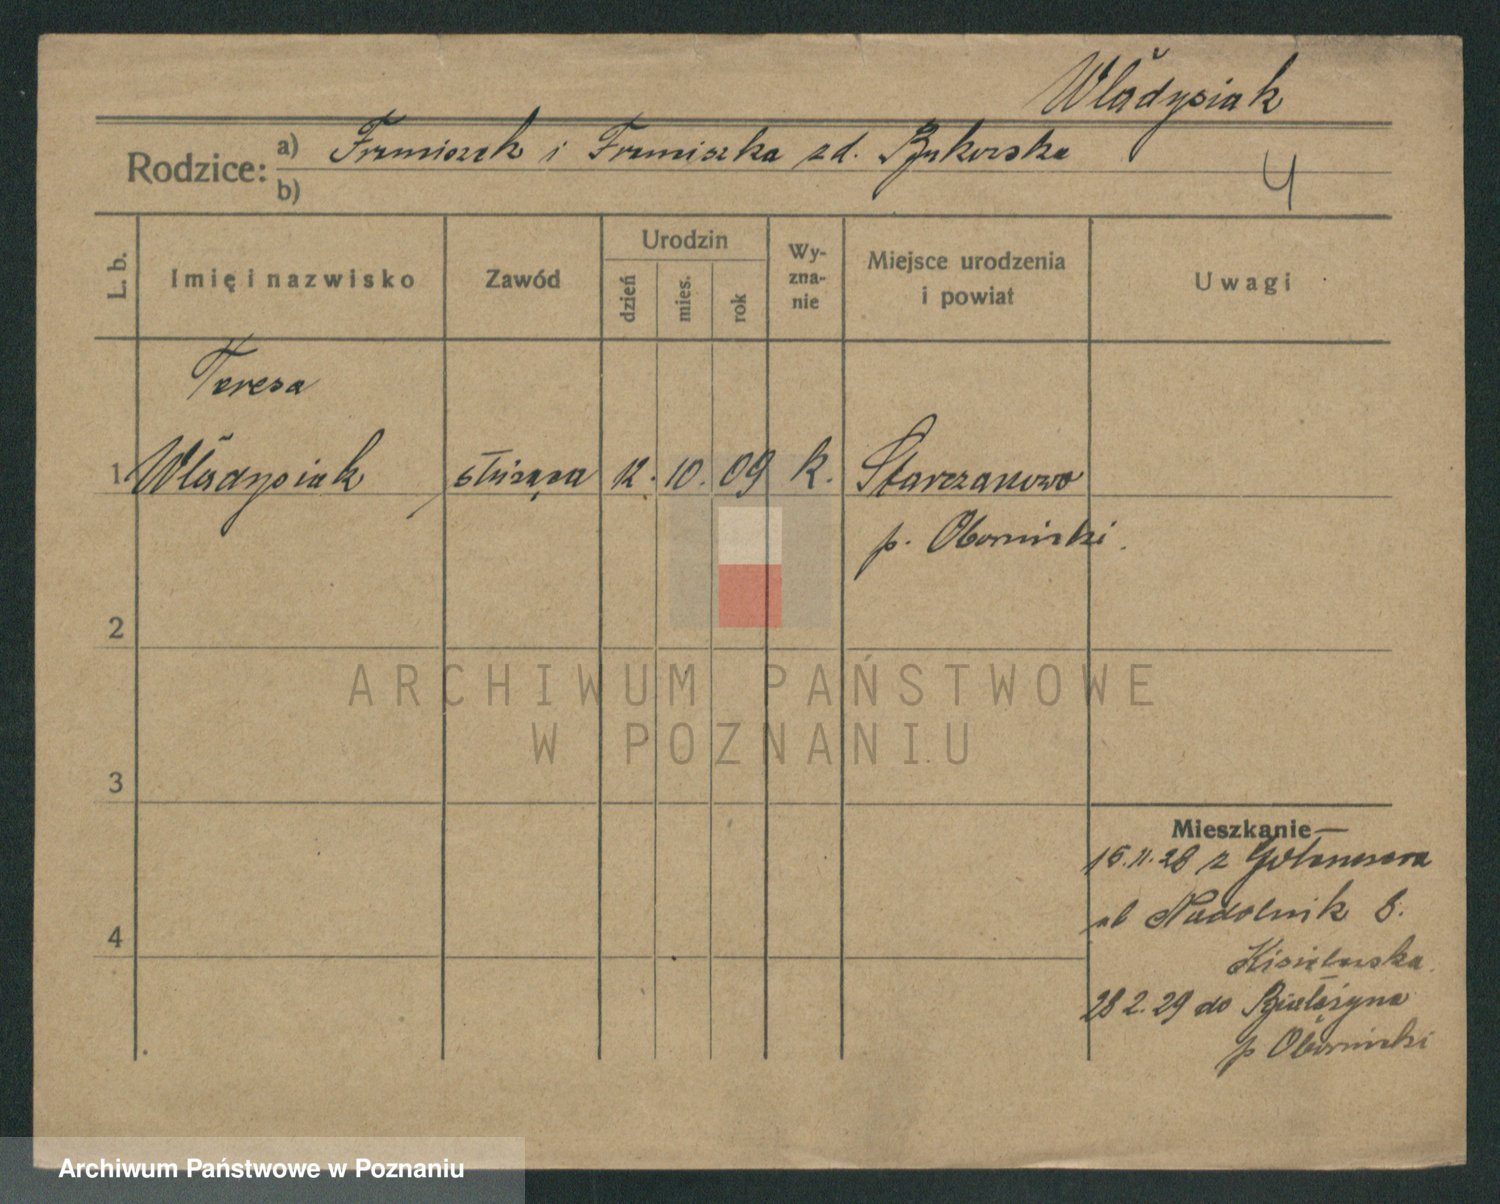 Władysiak
Rodzice: a) Franciszek i Franciszka zd. Bykowska
b)
4
L. b.
Imię i nazwisko
Zawód
Urodzin
dzień
mies.
rok
Wy-
zna-
nie
Miejsce urodzenia
i powiat
Uwagi
Teresa
1 Władysiak służąca 12. 10. 09 k. Starczanowo
p. Obornicki.
2
3
4
ARCHIWUM PAŃSTWOWE
W POZNANIU
Mieszkanie—
15.11.28 z
ul Nadolnik 8.
28 2.29 do
p Obornicki
Archiwum Państwowe w Poznaniu